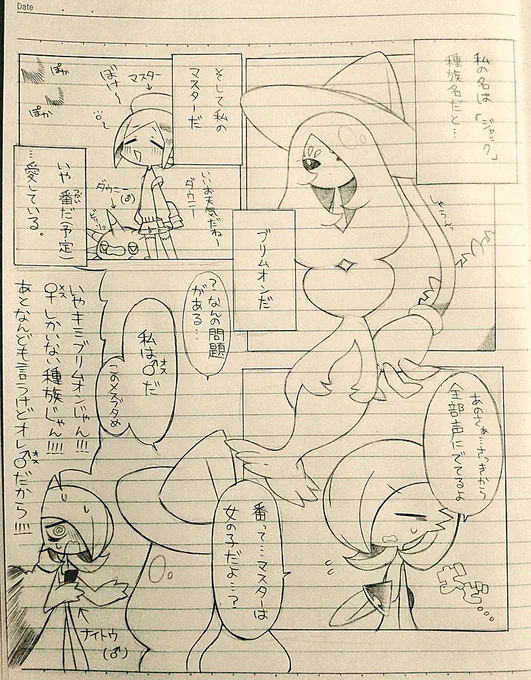 Date
私の名は「ジャック」
種族名だと…
ブリムオンだ
そして私の
マスターだ
マスター
ぽけ〜
ぽか
ぽか
いいお天気だねー
ダウニー
ダウニー(♂)
いや番だ(予定)
…愛している。
あのさぁ…さっきから
全部声にでてるよ
番って…マスターは
女の子だよ…?
?なんの問題
がある…
私は♂だ
オス
このメスブタめ
いやキミブリムオンじゃん!!!
♀しかいない種族じゃん!!!!
メス
あとなんども言うけどオレ♂だから!!!!
オス
ナイトウ
(♂)